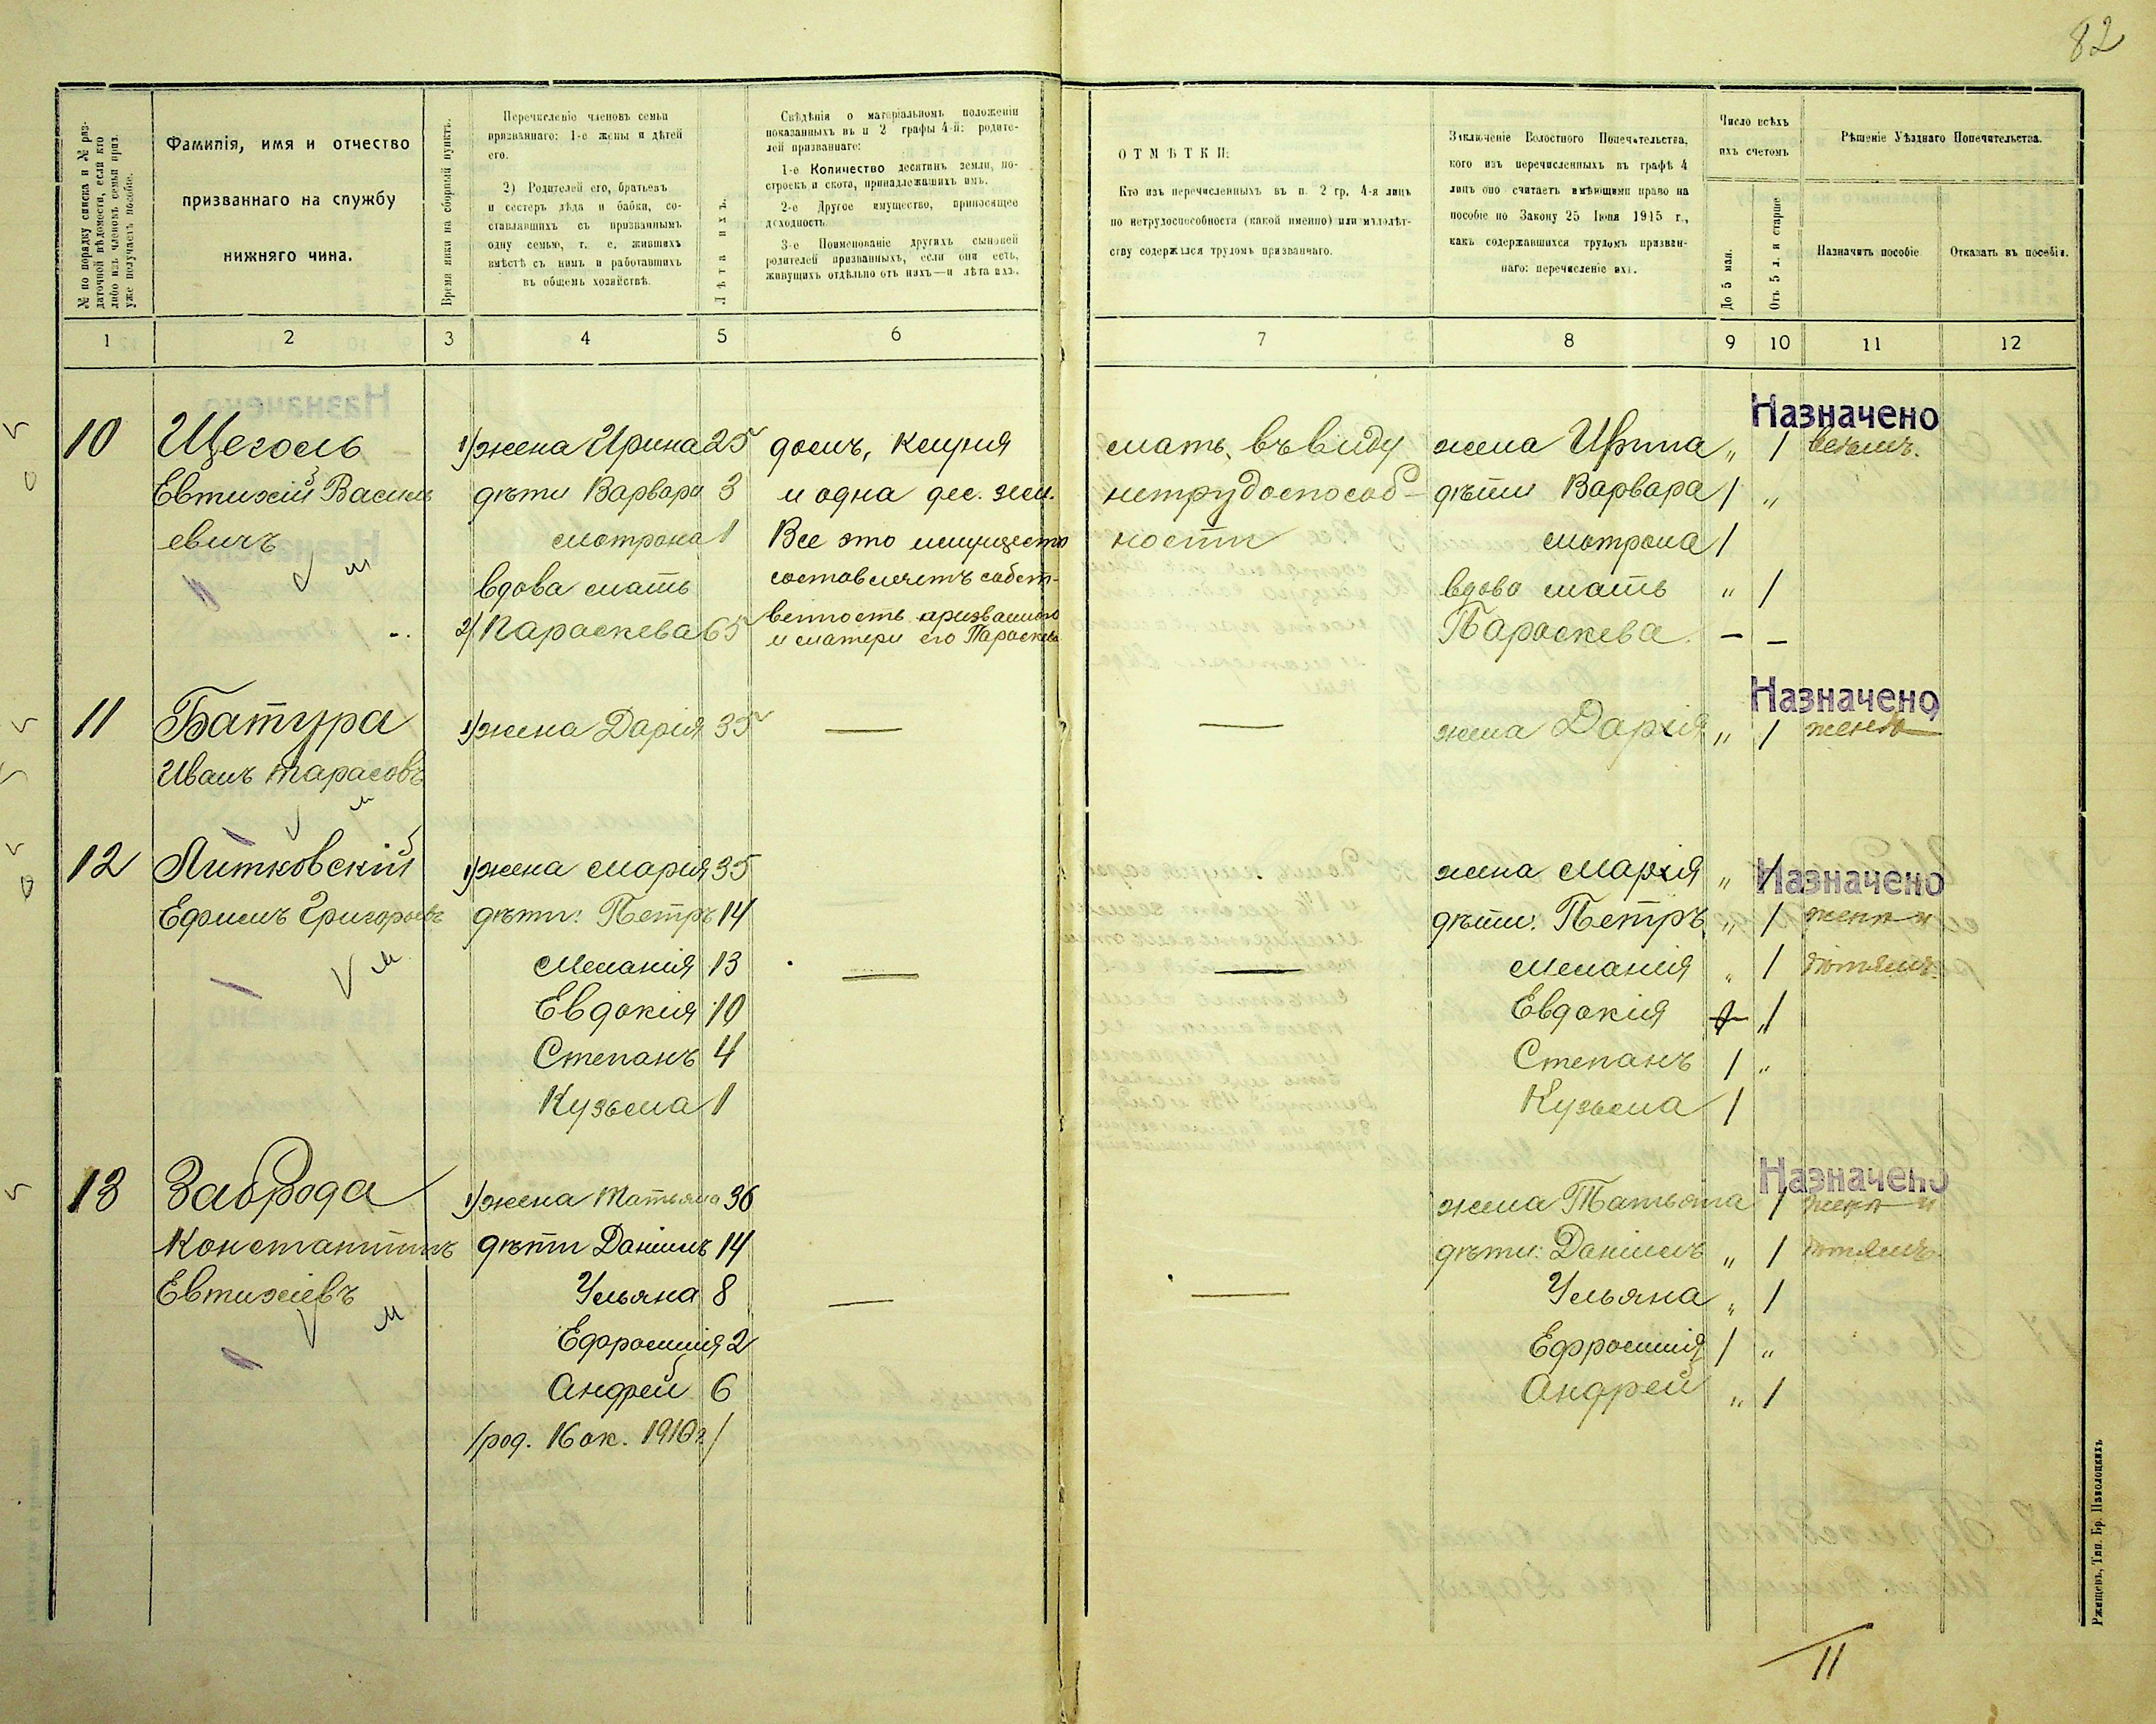 82
№ по порядку списка и № раз-
даточной вѣдомости, если кто
либо изъ членовъ семьи приз.
уже получаетъ пособіе.
Фамилія, имя и отчество
призваннаго на службу
нижняго чина.
Время явки на сборный пунктъ.
Перечисленіе членовъ семьи
призваннаго: 1-е жены и дѣтей
его.
2) Родителей его, братьевъ
и сестеръ дѣда и бабки, со-
ставлявшихъ съ призваннымъ
одну семью, т. е. жившихъ
вмѣстѣ съ нимъ и работавшихъ
въ общемъ хозяйствѣ.
Лѣта ихъ.
Свѣдѣнія о матеріальномъ положеніи
показанныхъ въ п 2 графы 4-й: родите-
лей призваннаго:
1-е Количество десятинъ земли, по-
строекъ и скота, принадлежащихъ имъ.
2-е Другое имущество, приносящее
доходность.
3-е Поименованіе другихъ сыновей
родителей призванныхъ, если они есть,
живущихъ отдѣльно отъ нихъ—и лѣта ихъ.
ОТМѢТКИ:
Кто изъ перечисленныхъ въ п. 2 гр. 4-я лицъ
по нетрудоспособности (какой именно) или малолѣт-
ству содержался трудомъ призваннаго.
Заключеніе Волостного Попечительства,
кого изъ перечисленныхъ въ графѣ 4
лицъ оно считаетъ имѣющими право на
пособіе по Закону 25 Іюня 1915 г.,
какъ содержавшихся трудомъ призван-
наго: перечисленіе ихъ.
Число всѣхъ
ихъ счетомъ
До 5 мал.
Отъ 5 л. и старше
Рѣшеніе Уѣзднаго Попечительства.
Назначить пособіе
Отказать въ пособіи.
1 2 3 4 5 6 7 8 9 10 11 12
Назначено
10 Щеголь 1) жена Ирина 25 домъ, клуня мать, въ виду жена Ирина " / всѣмъ.
Евтихій Василь дѣти Варвара 3 и одна дес. зем. нетрудоспособ- дѣти Варвара / "
евичъ Мотрона 1 Все это имущество ности Мотрона /
вдова мать составляетъ собст- вдова мать " /
2) Параскева 65 венность призваннаго Параскева. — —
и матери его Параскев
Назначено
11 Батура 1) жена Дарія 35 — — жена Дарія " / женѣ
Иванъ Тарасовъ
12 Литковскій 1) жена Марія 35 жена Марія " / Назначено
Ефимъ Григорьевъ дѣти: Петръ 14 дѣти: Петръ " / женѣ и
Меланія 13 — — Меланія " / дѣтямъ.
Евдокія 10 Евдокія "/
Степанъ 4 Степанъ / "
Кузьма 1 Кузьма /
Назначено
13 Заброда 1) жена Татьяна 36 жена Татьяна / женѣ и
Константинъ дѣти Даніилъ 14 дѣти: Даніилъ " / дѣтямъ.
Евтихіевъ Ульяна 8 — — Ульяна " /
Ефросинія 2 Ефросинія / "
Андрей 6 Андрей " /
/род. 16 ок. 1910 г/
11
Ржищевъ, Тип. Бр. Паволоцкихъ